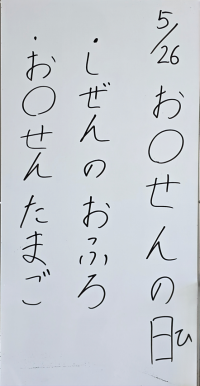 5/26 お〇せんの日ひ
・しぜんのおふろ
・お〇せんたまご